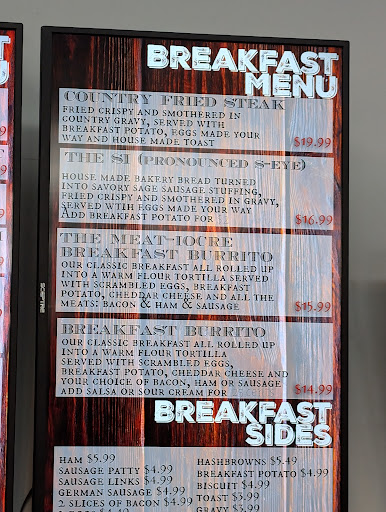 BREAKFAST
MENU
COUNTRY FRIED STEAK
FRIED CRISPY AND SMOTHERED IN
COUNTRY GRAVY, SERVED WITH
BREAKFAST POTATO, EGGS MADE YOUR
WAY AND HOUSE MADE TOAST $19.99
THE SI (PRONOUNCED S-EYE)
HOUSE MADE BAKERY BREAD TURNED
INTO SAVORY SAGE SAUSAGE STUFFING,
FRIED CRISPY AND SMOTHERED IN GRAVY,
SERVED WITH EGGS MADE YOUR WAY
ADD BREAKFAST POTATO FOR $16.99
THE MEAT-IOCRE
BREAKFAST BURRITO
OUR CLASSIC BREAKFAST ALL ROLLED UP
INTO A WARM FLOUR TORTILLA SERVED
WITH SCRAMBLED EGGS, BREAKFAST
POTATO, CHEDDAR CHEESE AND ALL THE
MEATS: BACON & HAM & SAUSAGE $15.99
BREAKFAST BURRITO
OUR CLASSIC BREAKFAST ALL ROLLED UP
INTO A WARM FLOUR TORTILLA
SERVED WITH SCRAMBLED EGGS,
BREAKFAST POTATO, CHEDDAR CHEESE AND
YOUR CHOICE OF BACON, HAM OR SAUSAGE
ADD SALSA OR SOUR CREAM FOR $14.99
BREAKFAST
SIDES
HAM $5.99
SAUSAGE PATTY $4.99
SAUSAGE LINKS $4.99
GERMAN SAUSAGE $4.99
2 SLICES OF BACON $4.99
HASHBROWNS $5.49
BREAKFAST POTATO $4.99
BISCUIT $4.99
TOAST $3.99
GRAVY $3.99
SCEPTRE